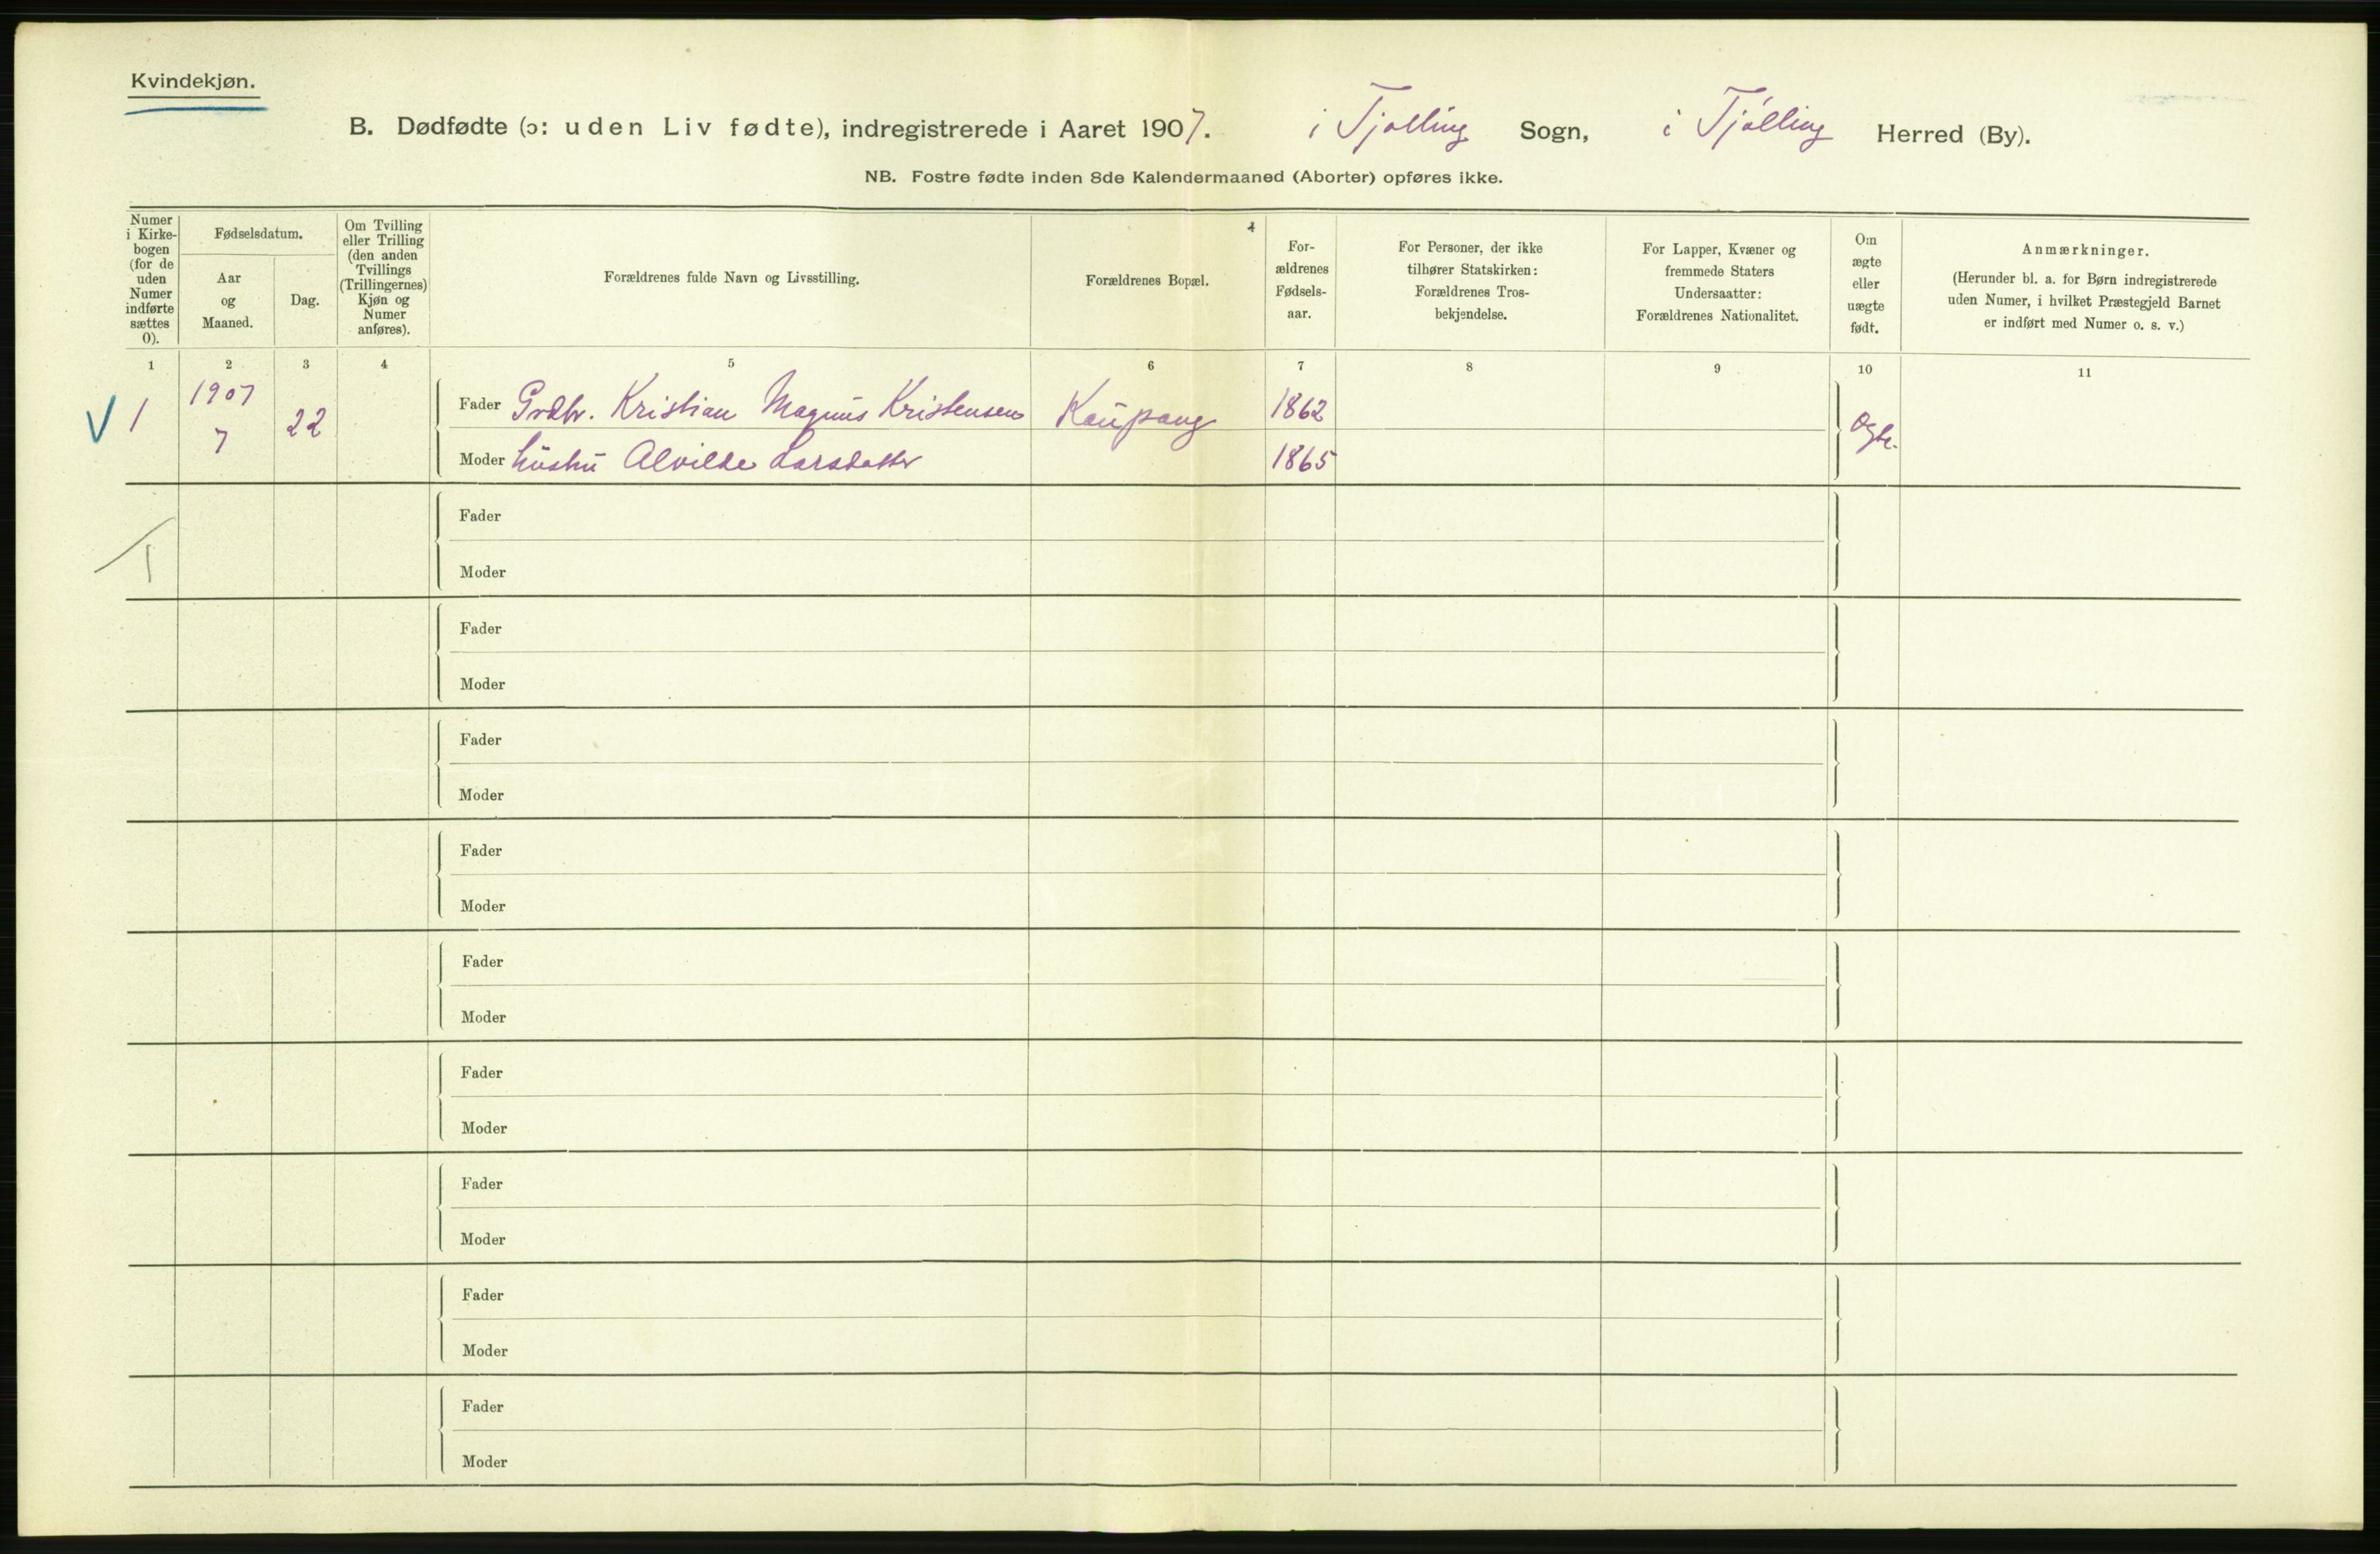 Kvindekjøn.
B. Dødfødte (ɔ: uden Liv fødte), indregistrerede i Aaret 1907. i Tjølling Sogn, i Tjølling Herred (By).
NB. Fostre fødte inden 8de Kalendermaaned (Aborter) opføres ikke.
Numer
i Kirke-
bogen
(for de
uden
Numer
indførte
sættes
0).
Fødselsdatum.
Aar
og
Maaned.
Dag.
Om Tvilling
eller Trilling
(den anden
Tvillings
(Trillingernes)
Kjøn og
Numer
anføres).
Forældrenes fulde Navn og Livsstilling.
4
Forældrenes Bopæl.
For-
ældrenes
Fødsels-
aar.
For Personer, der ikke
tilhører Statskirken:
Forældrenes Tros-
bekjendelse.
For Lapper, Kvæner og
fremmede Staters
Undersaatter:
Forældrenes Nationalitet.
Om
ægte
eller
uægte
født.
Anmærkninger.
(Herunder bl. a. for Børn indregistrerede
uden Numer, i hvilket Præstegjeld Barnet
er indført med Numer o. s. v.)
1 2 3 4 5 6 7 8 9 10 11
V 1 1907 22
7
Fader Grdbr. Kristian Magnus Kristensen Kaupang 1862
Moder Alvilde Larsdatter 1865
Fader
1
Moder
Fader
Moder
Fader
Moder
Fader
Moder
Fader
Moder
Fader
Moder
Fader
Moder
Fader
Moder
Fader
Moder